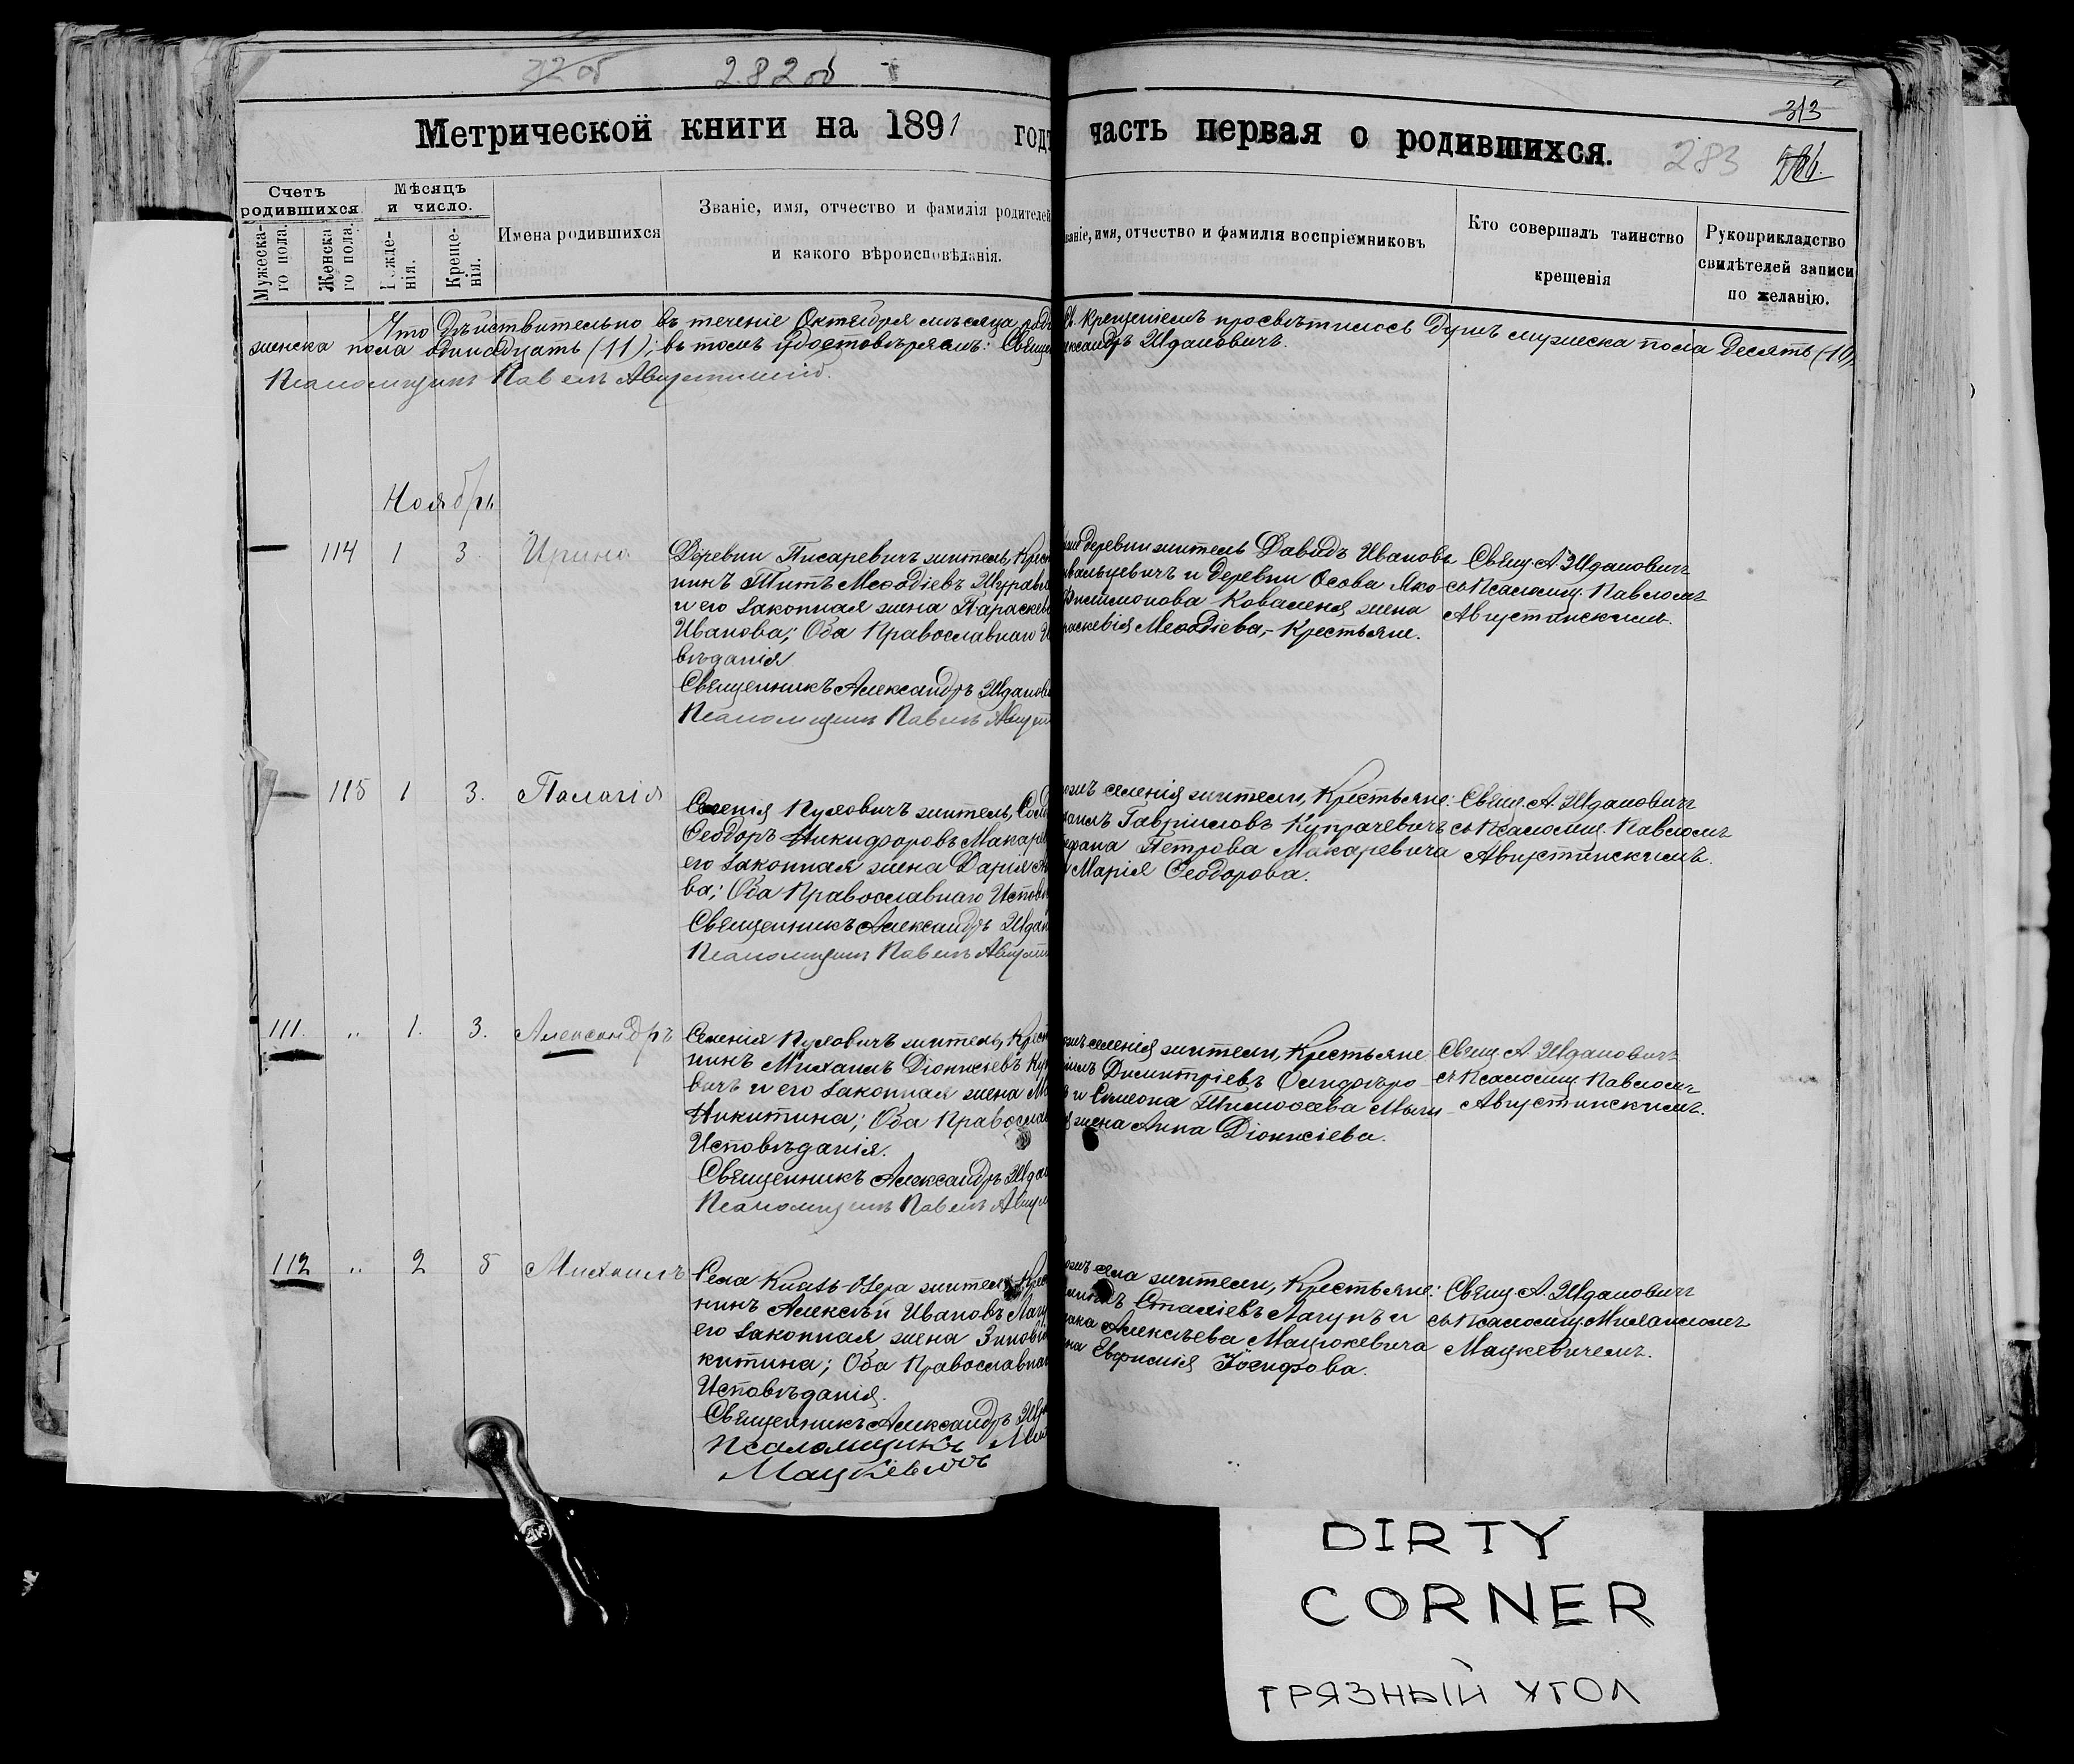 282 об
313
Метрической книги на 1891 год часть первая о родившихся.
283
Счетъ родившихся
Мѣсяцъ и число.
Мужеска-го пола.
Женска го пола.
Рожде-нія.
Креще-нія.
Имена родившихся
Званіе, имя, отчество и фамилія родителей
и какого вѣроисповѣданія.
званіе, имя, отчество и фамилія воспріемниковъ
Кто совершалъ таинство
крещенія
Рукоприкладство
свидѣтелей записи
по желанію.
Что дѣйствительно въ теченіе Октября мѣсяца крещеніемъ просвѣтилось душъ мужеска пола десять (10)
женска пола одинадцать (11); въ томъ удостовѣряемъ: Александръ Ждановичъ.
Псаломщикъ Павелъ Августинскій.
Ноябрь
114 1 3 Ирина
Деревни Писаревичъ житель, Крест
нинъ Титъ Меѳодіевъ
и его законная жена Параскев
Иванова; Оба Православнаго
вѣданія
Священникъ Александръ Жданов
Псаломщикъ Павелъ Август
деревни житель Давидъ Ивановъ
и деревни Осова Яко-
Филимонова Коваленя жена
Меѳодіева,- Крестьяне.
Свящ. А. Ждановичъ
съ Псаломщ. Павломъ
Августинскимъ.
115 1 3. Палагія
Селенія Пуховичъ житель,
Ѳеодоръ Никифоровъ Макар
его законная жена Дарія
ва; Оба Православнаго Испов
Священникъ Александръ Ждан
Псаломщикъ Павелъ Август
селенія жители, Крестьяне:
Гавріиловъ Купрачевичъ
Петрова Макаревича
Марія Ѳеодорова.
Свящ. А. Ждановичъ
съ Псаломщ. Павломъ
Августинскимъ.
111. " 1. 3. Александръ
Селенія Пуховичъ житель, Крест
нинъ Михаилъ Діонисіевъ Куп
вичъ и его законная жена
Никитина; Оба Православ
Исповѣданія.
Священникъ Александръ Ждан
Псаломщикъ Павелъ Авгус
селенія жители, Крестьяне
Димитріевъ
и Симеона Тимоѳеева
жена Анна Діонисіева.
Свящ. А. Ждановичъ
съ Псаломщ. Павломъ
Августинскимъ.
112 " 2 5 Михаилъ
Села Князь-Озера житель, Крес
нинъ Алексѣй Ивановъ Лагу
его законная жена Зиновія
китина; Оба Православнаго
Исповѣданія.
Священникъ Александръ Жд
Псаломщикъ Мих
Мацкевичъ
села жители, Крестьяне:
Лагунъ и
Алексѣева Мацюкевича
Евфимія Іосифова.
Свящ. А. Ждановичъ
съ Псаломщ. Михаиломъ
Мацкевичемъ.
DIRTY
CORNER
ГРЯЗНЫЙ УГОЛ